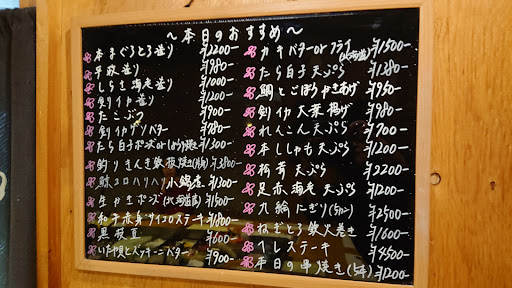 ～本日のおすすめ～
本まぐろとろ造り ¥2200-
平政造り ¥980-
しらさ海老造り ¥1000-
剣イカ造り ¥1200-
たこぶつ ¥900-
剣イカゲソバター ¥980-
たら白子ポン酢or(しょうゆ)焼き ¥1300-
釣りきんき 焼(時価) ¥3800-
鯨コロハリハリ小鍋 ¥1300-
生かきポンズ(北海道) ¥1500-
和牛赤身サイコロステーキ ¥1800-
黒枝豆 ¥600-
いたや貝とズッキーニバター ¥900-
カキバターorフライ(北海道) ¥1500-
たら白子天ぷら ¥1380-
鯛とごぼうかきあげ ¥950-
剣イカ大葉揚げ ¥980-
れんこん天ぷら ¥700-
本ししゃも天ぷら ¥1200-
松茸天ぷら ¥2200-
足赤海老天ぷら ¥1200-
九絵にぎり(5カン) ¥2500-
ねぎとろ鉄火巻き ¥1600-
ヘレステーキ ¥4500-
本日の串焼き(5本) ¥1200